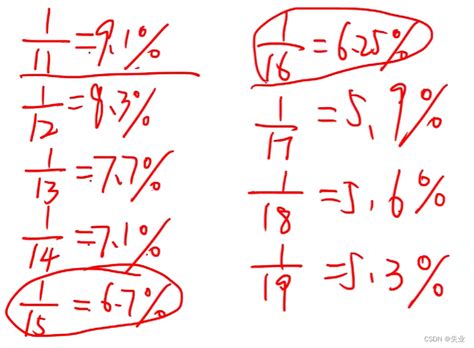 1/11=9.1%
1/12=8.3%
1/13=7.7%
1/14=7.1%
1/15=6.7%
1/16=6.25%
1/17=5.9%
1/18=5.6%
1/19=5.3%
CSDN @失业